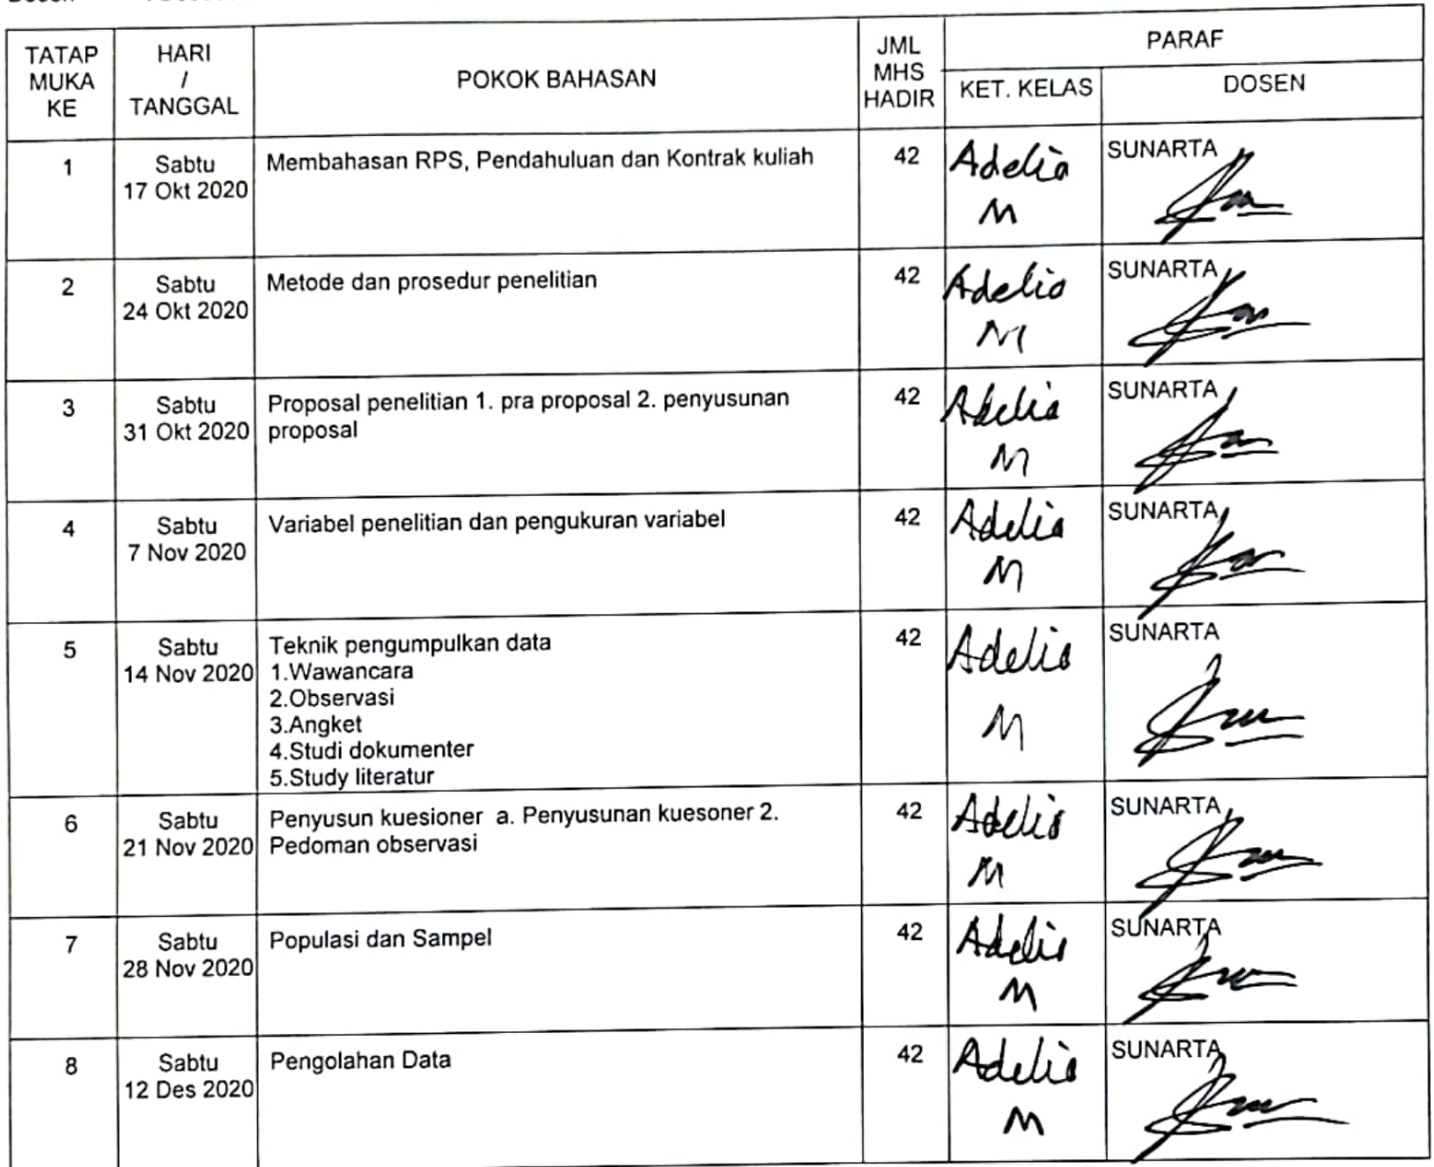 TATAP MUKA KE HARI / TANGGAL POKOK BAHASAN JML MHS HADIR PARAF
KET. KELAS DOSEN
1 Sabtu 17 Okt 2020 Membahasan RPS, Pendahuluan dan Kontrak kuliah 42 Adelia M SUNARTA
2 Sabtu 24 Okt 2020 Metode dan prosedur penelitian 42 Adelia M SUNARTA
3 Sabtu 31 Okt 2020 Proposal penelitian 1. pra proposal 2. penyusunan proposal 42 Adelia M SUNARTA
4 Sabtu 7 Nov 2020 Variabel penelitian dan pengukuran variabel 42 Adelia M SUNARTA
5 Sabtu 14 Nov 2020 Teknik pengumpulkan data
1.Wawancara
2.Observasi
3.Angket
4.Studi dokumenter
5.Study literatur
42 Adelia M SUNARTA
6 Sabtu 21 Nov 2020 Penyusun kuesioner a. Penyusunan kuesoner 2. Pedoman observasi 42 Adelia M SUNARTA
7 Sabtu 28 Nov 2020 Populasi dan Sampel 42 Adelia M SUNARTA
8 Sabtu 12 Des 2020 Pengolahan Data 42 Adelia M SUNARTA